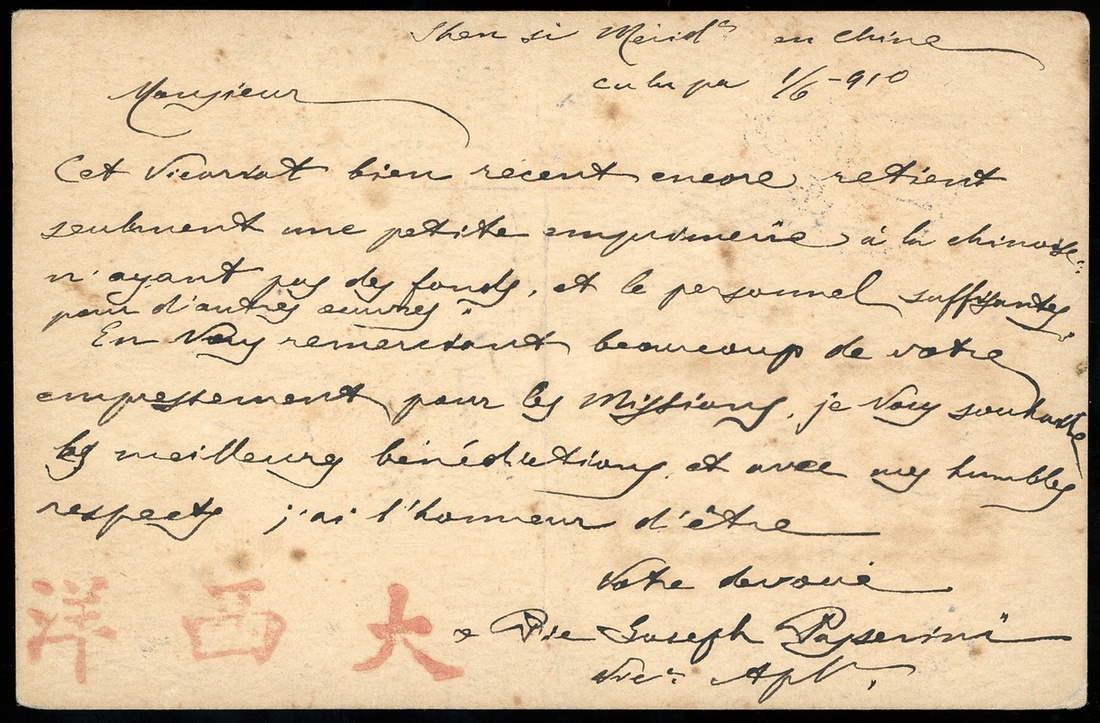 Shen si Merid.ˡᵉ en Chine
Culupa 1/6-910
Monsieur
Cet Vicariat bien récent encore retient
seulement une petite emprimerie à la chinoise
n'ayant pas des fonds, et le personnel suffisantes
pour d'autres œuvres
En Vous remerciant beaucoup de votre
empressement pour les Missions, je Vous souhaite
les meilleurs bénédictions, et avec mes humbles
respects j'ai l'honneur d'être
Votre devoué
Pie Joseph Passerini
Vic. Ap.
大西洋